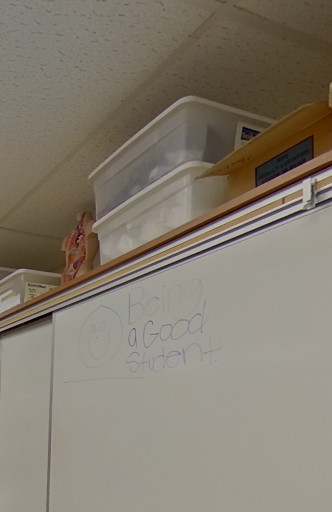 Being
a Good
Student